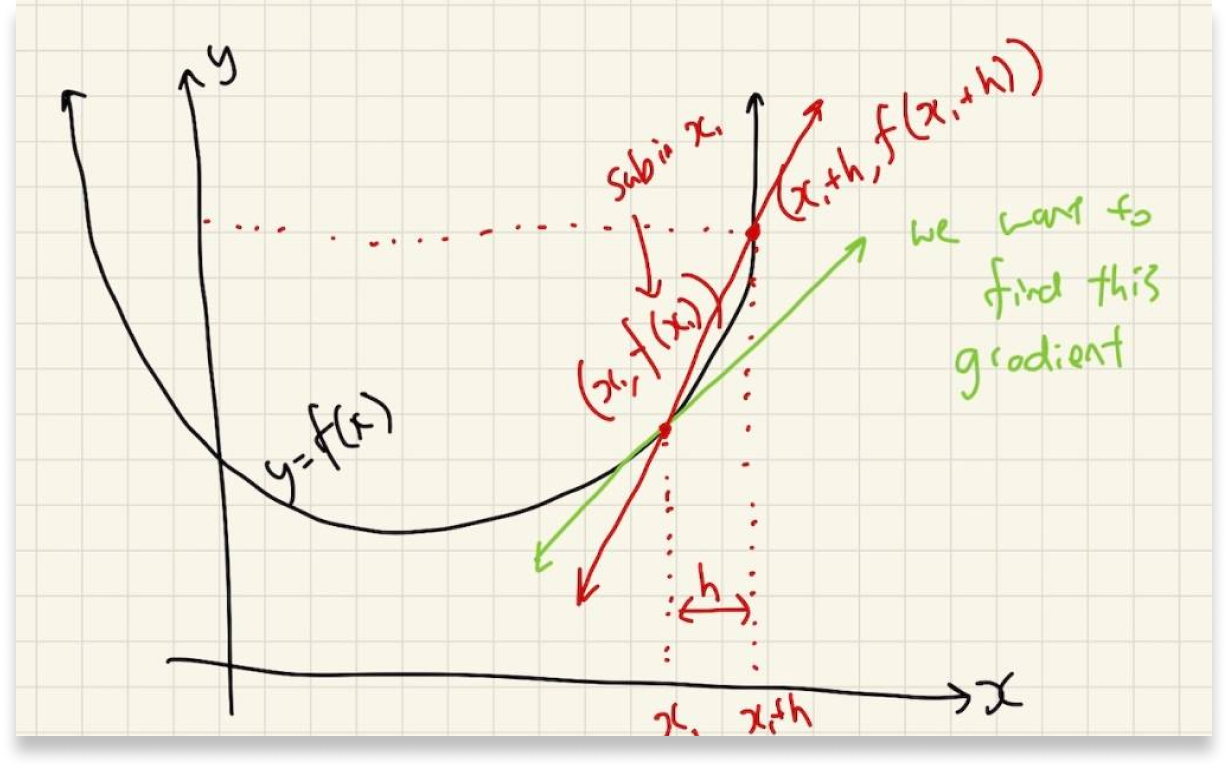 y
sub in x₁
(x₁+h, f(x₁+h))
we want to
find this
gradient
(x₁, f(x₁))
y=f(x)
h
x
x₁
x₁+h